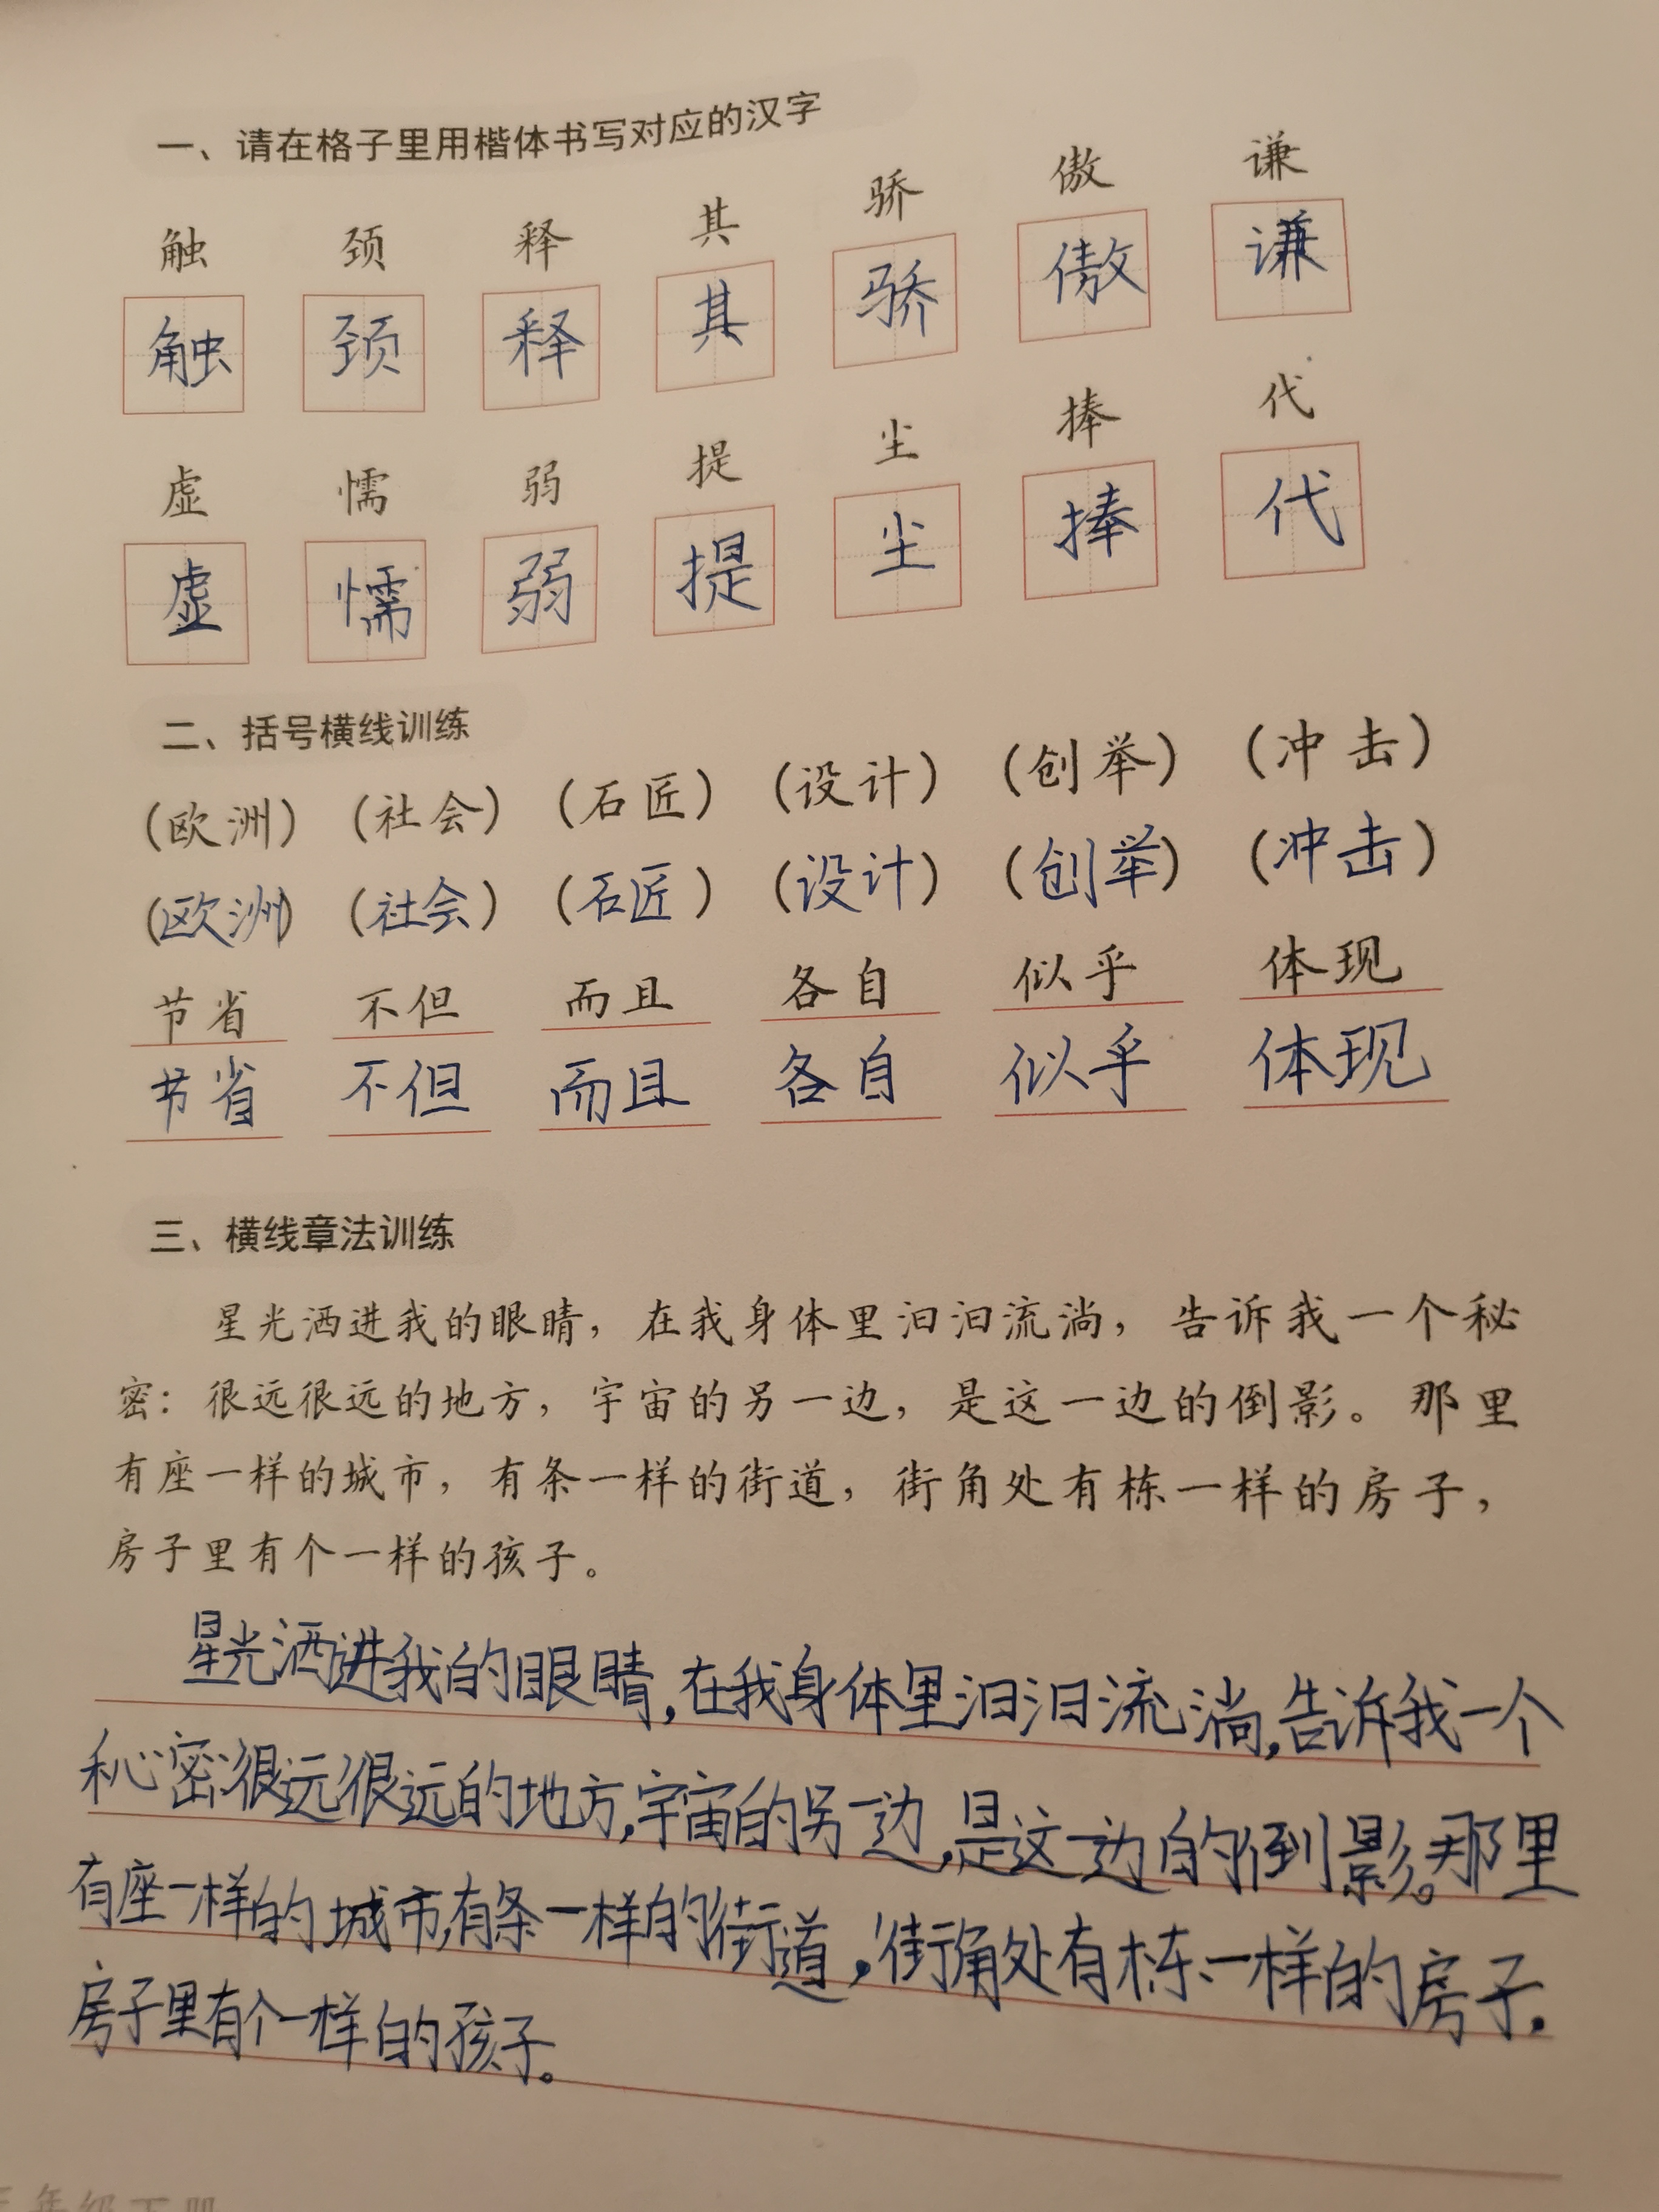 一、请在格子里用楷体书写对应的汉字
触 颈 释 其 骄 傲 谦
触 颈 释 其 骄 傲 谦
虚 懦 弱 提 尘 捧 代
虚 懦 弱 提 尘 捧 代
二、括号横线训练
(欧洲) (社会) (石匠) (设计) (创举) (冲击)
(欧洲) (社会) (石匠) (设计) (创举) (冲击)
节省 不但 而且 各自 似乎 体现
节省 不但 而且 各自 似乎 体现
三、横线章法训练
星光洒进我的眼睛，在我身体里汩汩流淌，告诉我一个秘
密：很远很远的地方，宇宙的另一边，是这一边的倒影。那里
有座一样的城市，有条一样的街道，街角处有栋一样的房子，
房子里有个一样的孩子。
星光洒进我的眼睛,在我身体里汩汩流淌,告诉我一个
秘密:很远很远的地方,宇宙的另一边,是这一边的倒影。那里
有座一样的城市,有条一样的街道,街角处有栋一样的房子.
房子里有个一样的孩子。
年级下册